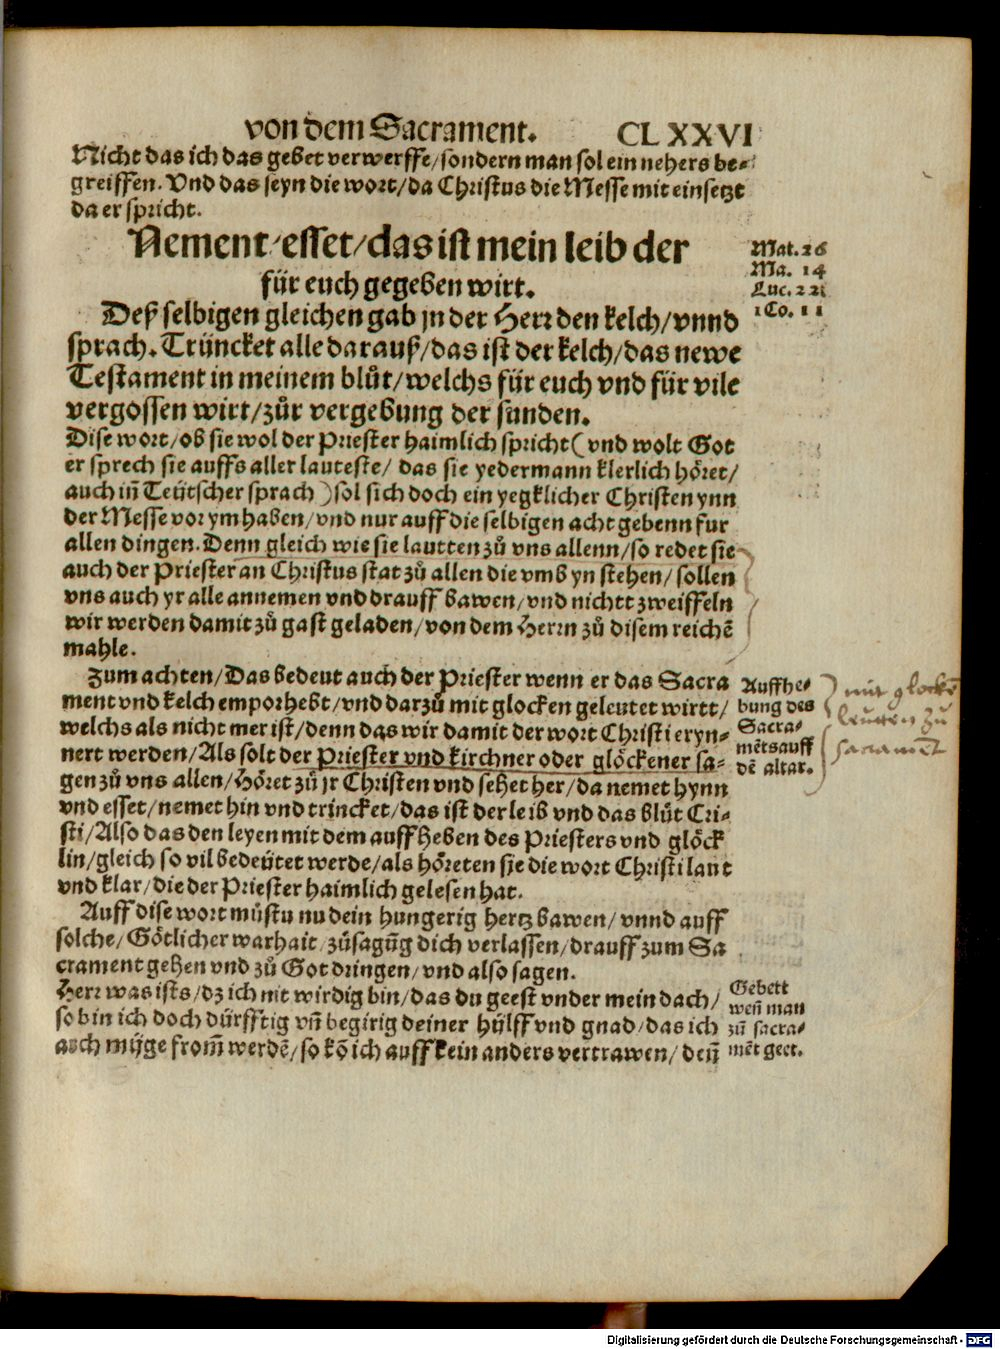 von dem Sacrament. CLXXVI
Nicht das ich das gebet verwerffe/sondern man sol ein nehers be⸗
greiffen. Vnd das seyn die wort/da Christus die Messe mit einsetzt
da er spricht.
Nement/esset/das ist mein leib der
für euch gegeben wirt.
Mat. 26
Ma. 14
Luc. 22
1 Co. 11
Deß selbigen gleichen gab jn der Herr den kelch/vnnd
sprach. Trüncket alle darauß/das ist der kelch/das newe
Testament in meinem blůt/welchs für euch vnd für vile
vergossen wirt/zůr vergebung der sunden.
Dise wort/ob sie wol der Priester haimlich spricht(vnd wolt Got
er sprech sie auffs aller lauteste/ das sie yedermann klerlich höret/
auch in̄ Teütscher sprach)sol sich doch ein yegklicher Christen ynn
der Messe vor ym haben/vnd nur auff die selbigen acht gebenn fur
allen dingen. Denn gleich wie sie lautten zů vns allenn/so redet sie
auch der Priester an Christus stat zů allen die vmb yn stehen/sollen
vns auch yr alle annemen vnd drauff bawen/vnd nichtt zweiffeln
wir werden damit zů gast geladen/von dem Herrn zů disem reichē
mahle.
Zum achten/Das bedeut auch der Priester wenn er das Sacra
ment vnd kelch emporhebt/vnd darzů mit glocken geleutet wirtt/
welchs als nicht mer ist/denn das wir damit der wort Christi eryn⸗
nert werden/Als solt der Priester vnd kirchner oder glöckener sa⸗
gen zů vns allen/Höret zů jr Christen vnd sehet her/da nemet hynn
vnd esset/nemet hin vnd trincket/das ist der leib vnd das blůt Cri⸗
sti/Also das den leyen mit dem auffheben des Priesters vnd glöck
lin/gleich so vil bedeütet werde/als höreten sie die wort Christi laut
vnd klar/die der Priester haimlich gelesen hat.
Auffhe⸗
bung des
Sacra⸗
mētsauff
dē altar.
mit glockē
leutten zů
sacramēt
Auff dise wort můstu nu dein hungerig hertz bawen/vnnd auff
solche/Götlicher warhait/zůsagūg dich verlassen/drauff zum Sa
crament gehen vnd zů Got dringen/vnd also sagen.
Herr was ists/dz ich nit wirdig bin/das du geest vnder mein dach/
so bin ich doch dürfftig vn̄ begirig deiner hylff vnd gnad/das ich
auch müge from̄ werdē/so kō ich auff kein anders vertrawen/den̄
Gebett
wen̄ man
zů sacra⸗
mēt geet.
Digitalisierung gefördert durch die Deutsche Forschungsgemeinschaft - DFG